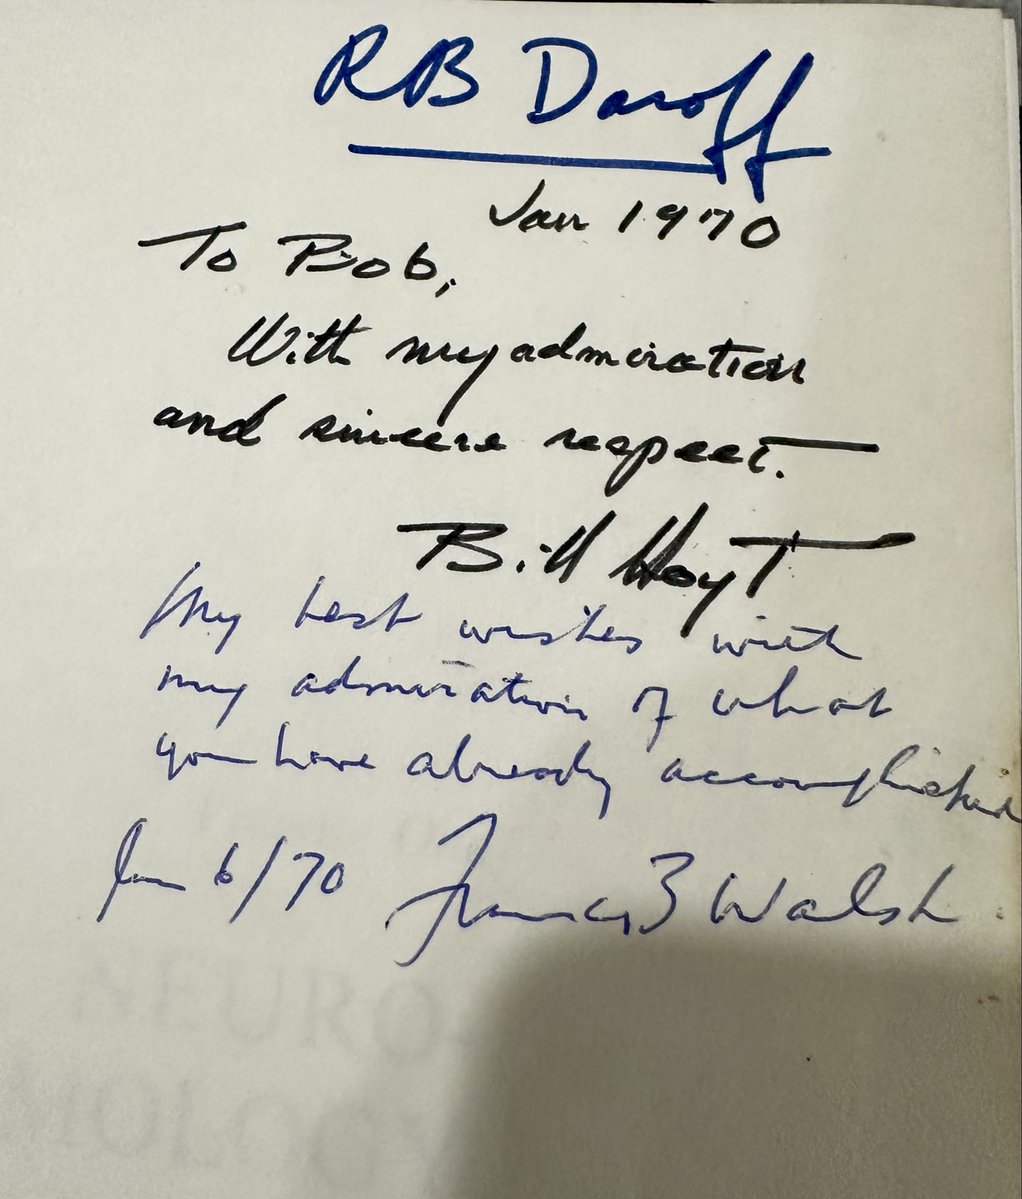 RB Daroff
Jan 1970
To Bob,
With my admiration
and sincere respect.
Bill Hoyt
My best wishes with
my admiration of what
you have already accomplished
Jan 6/70 Francis B Walsh
NEURO-
HOLOGY